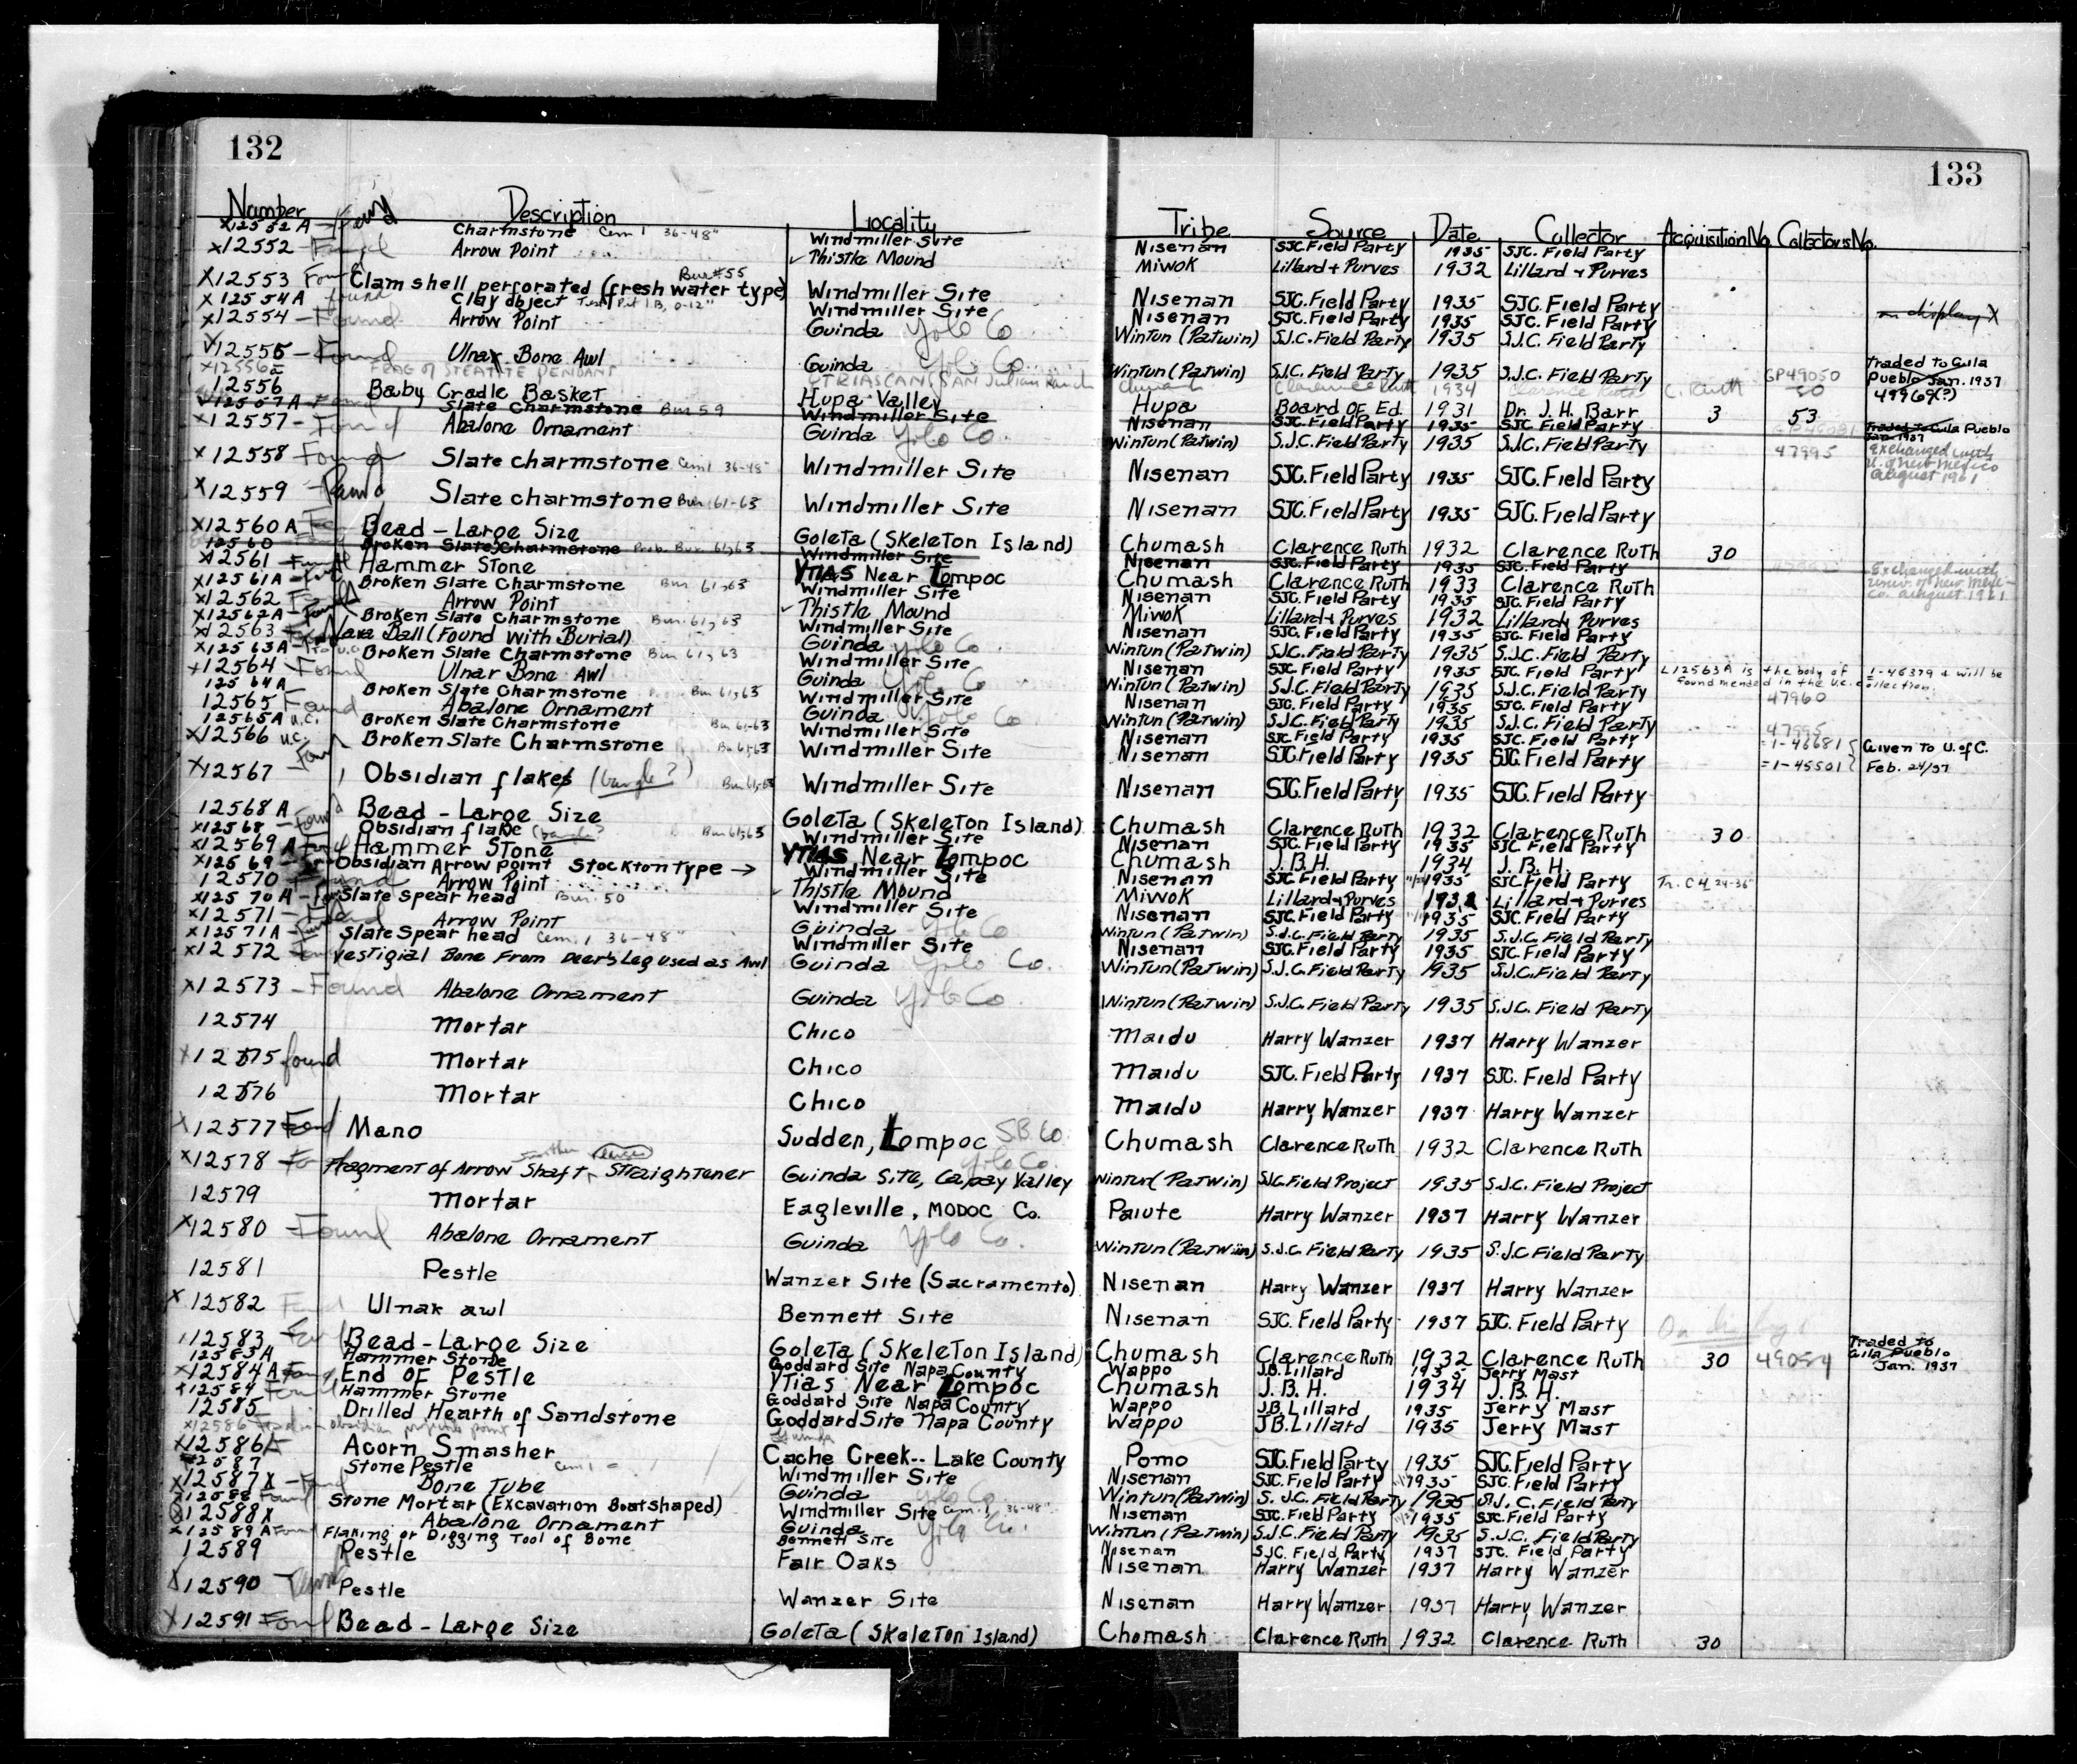 132
133
Number Description Locality Tribe Source Date Collector Acquisition No. Collectors No.
x12552 A - Found Charmstone Cem 1 36-48" Windmiller Site Nisenan SJC. Field Party 1935 SJC. Field Party
x12552 - Found Arrow Point ✓ Thistle Mound Miwok Lillard + Purves 1932 Lillard + Purves
x12553 Found Clam shell perforated (fresh water type) Bur #55 Windmiller Site Nisenan SJC. Field Party 1935 SJC. Field Party
x12554A found Clay object Test Pit 1B, 0-12" Windmiller Site Nisenan SJC. Field Party 1935 SJC. Field Party on display X
x12554 - Found Arrow Point Guinda Yolo Co Wintun (Patwin) S.J.C. Field Party 1935 S.J.C. Field Party
x12555 - Found Ulnar Bone Awl Guinda Yolo Co. Wintun (Patwin) S.J.C. Field Party 1935 S.J.C. Field Party GP49050 Traded to Gila Pueblo Jan. 1937
x12556a FRAG of STEATITE PENDANT San Julian Ranch Chumash Clarence Ruth 1934 Clarence Ruth C. Ruth 50 49969(?)
12556 Baby Cradle Basket Hupa Valley Hupa Board of Ed. 1931 Dr. J. H. Barr 3 53
12557A - Found Slate Charmstone Bur 59 Windmiller Site Nisenan SJC. Field Party 1935 SJC. Field Party Traded to Gila Pueblo Jan. 1937
x12557 - Found Abalone Ornament Guinda Yolo Co. Wintun (Patwin) S.J.C. Field Party 1935 S.J.C. Field Party 47995 Exchanged with U. of New Mexico August 1961
x12558 Found Slate charmstone Cem 1 36-48" Windmiller Site Nisenan SJC. Field Party 1935 SJC. Field Party
x12559 - Found Slate charmstone Bur. 61-63 Windmiller Site Nisenan SJC. Field Party 1935 SJC. Field Party
x12560 A Bead - Large Size Goleta (Skeleton Island) Chumash Clarence Ruth 1932 Clarence Ruth 30
12560 Broken Slate Charmstone Prob. Bur. 61,63 Windmiller Site Nisenan SJC. Field Party 1935 SJC. Field Party Exchanged with Univ. of New Mexico August 1961
x12561 - Found Hammer Stone Ytias Near Lompoc Chumash Clarence Ruth 1933 Clarence Ruth
x12561A - Broken Slate Charmstone Bur 61,63 Windmiller Site Nisenan SJC. Field Party 1935 SJC. Field Party
x12562 Arrow Point ✓ Thistle Mound Miwok Lillard + Purves 1932 Lillard + Purves
x12562A - Found Broken Slate Charmstone Bur. 61, 63 Windmiller Site Nisenan SJC. Field Party 1935 SJC. Field Party
x12563 Lava Ball (Found with Burial) Guinda Yolo Co Wintun (Patwin) S.J.C. Field Party 1935 S.J.C. Field Party
x12563A - To U.C. Broken Slate Charmstone Bur 61, 63 Windmiller Site Nisenan SJC. Field Party 1935 SJC. Field Party L12563A is the body of 1-46379 & will be found mended in the U.C. collection.
x12564 - Found Ulnar Bone Awl Guinda Yolo Co Wintun (Patwin) S.J.C. Field Party 1935 S.J.C. Field Party
12564A Broken Slate Charmstone Bur 61,63 Windmiller Site Nisenan SJC. Field Party 1935 SJC. Field Party 47960
12565 Found Abalone Ornament Guinda Yolo Co Wintun (Patwin) S.J.C. Field Party 1935 S.J.C. Field Party 47995
12565A U.C. Broken Slate Charmstone Bur 61-63 Windmiller Site Nisenan SJC. Field Party 1935 SJC. Field Party =1-46681 Given To U. of C.
x12566 U.C. Broken Slate Charmstone Bu 61,63 Windmiller Site Nisenan SJC. Field Party 1935 SJC. Field Party =1-45501 Feb. 24/37
x12567 - Found Obsidian flakes (bangle?) Bur 61,63 Windmiller Site Nisenan SJC. Field Party 1935 SJC. Field Party
12568 A Bead - Large Size Goleta (Skeleton Island) Chumash Clarence Ruth 1932 Clarence Ruth 30
x12568 - Found Obsidian flake (bangle? Bur 61,63 Windmiller Site Nisenan SJC. Field Party 1935 SJC. Field Party
x12569 A Found Hammer Stone Ytias Near Lompoc Chumash J. B. H. 1934 J. B. H.
x12569 - Obsidian Arrow point Stockton type → Windmiller Site Nisenan SJC. Field Party 1935 SJC. Field Party Tr. C4, 24-36"
12570 - Found Arrow Point ✓ Thistle Mound Miwok Lillard + Purves 1932 Lillard + Purves
x12570 A - Slate Spear head Bur. 50 Windmiller Site Nisenan SJC. Field Party 1935 SJC. Field Party
x12571 - Found Arrow Point Guinda Yolo Co Wintun (Patwin) S.J.C. Field Party 1935 S.J.C. Field Party
x12571A - Slate Spear head Cem. 1 36-48" Windmiller Site Nisenan SJC. Field Party 1935 SJC. Field Party
x12572 Vestigial Bone From Deer's Leg used as Awl Guinda Yolo Co. Wintun (Patwin) S.J.C. Field Party 1935 S.J.C. Field Party
x12573 - Found Abalone Ornament Guinda Yolo Co. Wintun (Patwin) S.J.C. Field Party 1935 S.J.C. Field Party
12574 Mortar Chico Maidu Harry Wanzer 1937 Harry Wanzer
x12575 found Mortar Chico Maidu SJC. Field Party 1937 SJC. Field Party
12576 Mortar Chico Maidu Harry Wanzer 1937 Harry Wanzer
x12577 Found Mano Sudden, Lompoc S.B. Co. Chumash Clarence Ruth 1932 Clarence Ruth
x12578 Fragment of Arrow Shaft Straightener Guinda Site, Capay Valley Yolo Co. Wintun (Patwin) S.J.C. Field Project 1935 S.J.C. Field Project
12579 Mortar Eagleville, MODOC Co. Paiute Harry Wanzer 1937 Harry Wanzer
x12580 - Found Abalone Ornament Guinda Yolo Co. Wintun (Patwin) S.J.C. Field Party 1935 S.J.C Field Party
12581 Pestle Wanzer Site (Sacramento) Nisenan Harry Wanzer 1937 Harry Wanzer
x 12582 Found Ulnar awl Bennett Site Nisenan SJC. Field Party 1937 SJC. Field Party On display
12583 Bead - Large Size Goleta (Skeleton Island) Chumash Clarence Ruth 1932 Clarence Ruth 30 49054 Traded to Gila Pueblo Jan. 1937
12583A Hammer Stone Goddard Site Napa County Wappo J.B. Lillard 1935 Jerry Mast
x12584A End of Pestle Ytias Near Lompoc Chumash J. B. H. 1934 J. B. H.
x12584 Found Hammer Stone Goddard Site Napa County Wappo J.B. Lillard 1935 Jerry Mast
12585 Drilled Hearth of Sandstone Goddard Site Napa County Wappo J.B. Lillard 1935 Jerry Mast
x12586 obsidian projectile point Guinda
x12586A Acorn Smasher Cache Creek-- Lake County Pomo SJC. Field Party 1935 SJC. Field Party
12587 Stone Pestle Cem 1 Windmiller Site Nisenan SJC. Field Party 1935 SJC. Field Party
x12587X - Found Bone Tube Guinda Yolo Co. Wintun (Patwin) S.J.C. Field Party 1935 S.J.C. Field Party
x12588 Found Stone Mortar (Excavation Boat shaped) Windmiller Site Cem. 1, 36-48" Nisenan SJC. Field Party 1935 SJC. Field Party
x12588X Abalone Ornament Guinda Yolo Co. Wintun (Patwin) S.J.C. Field Party 1935 S.J.C. Field Party
x12589A Found Flaking or Digging Tool of Bone Bennett Site Nisenan SJC. Field Party 1937 SJC. Field Party
12589 Pestle Fair Oaks Nisenan Harry Wanzer 1937 Harry Wanzer
x12590 Found Pestle Wanzer Site Nisenan Harry Wanzer 1937 Harry Wanzer
x12591 Found Bead - Large Size Goleta (Skeleton Island) Chumash Clarence Ruth 1932 Clarence Ruth 30